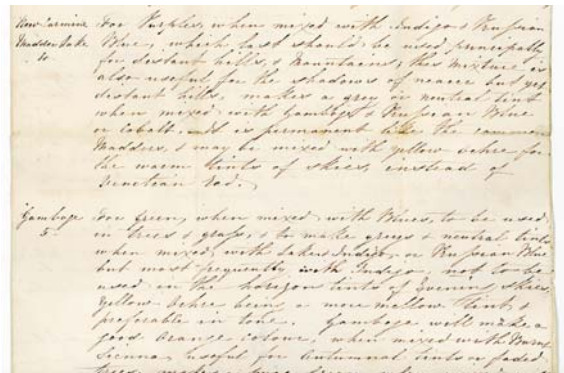 Now Carmine for Purples, when mixed with Indigo & Prussian
Madder Lake Blue, which last should be used principally
4 for distant hills, & Mountains; this mixture is
also useful for the shadows of nearer but yet
distant hills, makes a grey or neutral tint
when mixed with Gamboge & Prussian Blue
or Cobalt. It is permanent like the common
Madders, & may be mixed with yellow ochre for
the warm tints of skies, instead of
Venetian Red.
Gamboge for Green, when mixed with Blues, to be used
5 in trees & grass, & to make greys & neutral tints
when mixed with Lake & Indigo, or Prussian Blue
but most frequently with Indigo, not to be
used in the horizon tints of Evening skies,
Yellow Ochre being a more mellow tint &
preferable in tone. Gamboge will make a
good Orange colour, when mixed with Burnt
Sienna, useful for Autumnal tints or faded
trees, makes